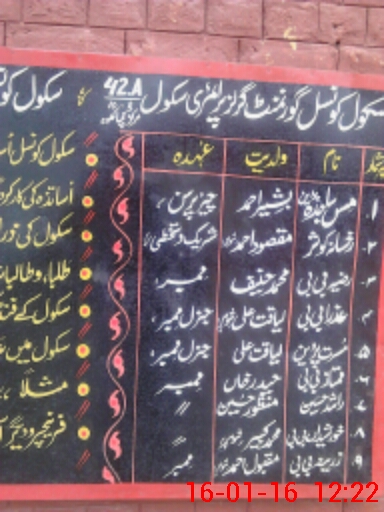 سکول کونسل گورنمنٹ گرلز پرائمری سکول 42.A
نام ولدیت عہدہ
۱ مس ساجدہ بشیر احمد چیئرپرسن
۲ رخسانہ کوثر مقصود احمد شریک دستخطی
۳ رضیہ بی بی محمد حنیف ممبر
۴ عذرا بی بی لیاقت علی جنرل ممبر
۵ مسرت پروین لیاقت علی جنرل ممبر
۶ ممتاز بی بی حیدر خاں ممبر
۷ راشد حسین منظور حسین //
۸ خورشیداں بی بی محمد کبیر //
۹ زرینہ بی بی مقبول احمد ممبر
سکول کونسل
اساتذہ کی
سکول کی
طلباء و طالبات
سکول کے
سکول میں
مثلاً
فرنیچر و دیگر
16-01-16 12:22